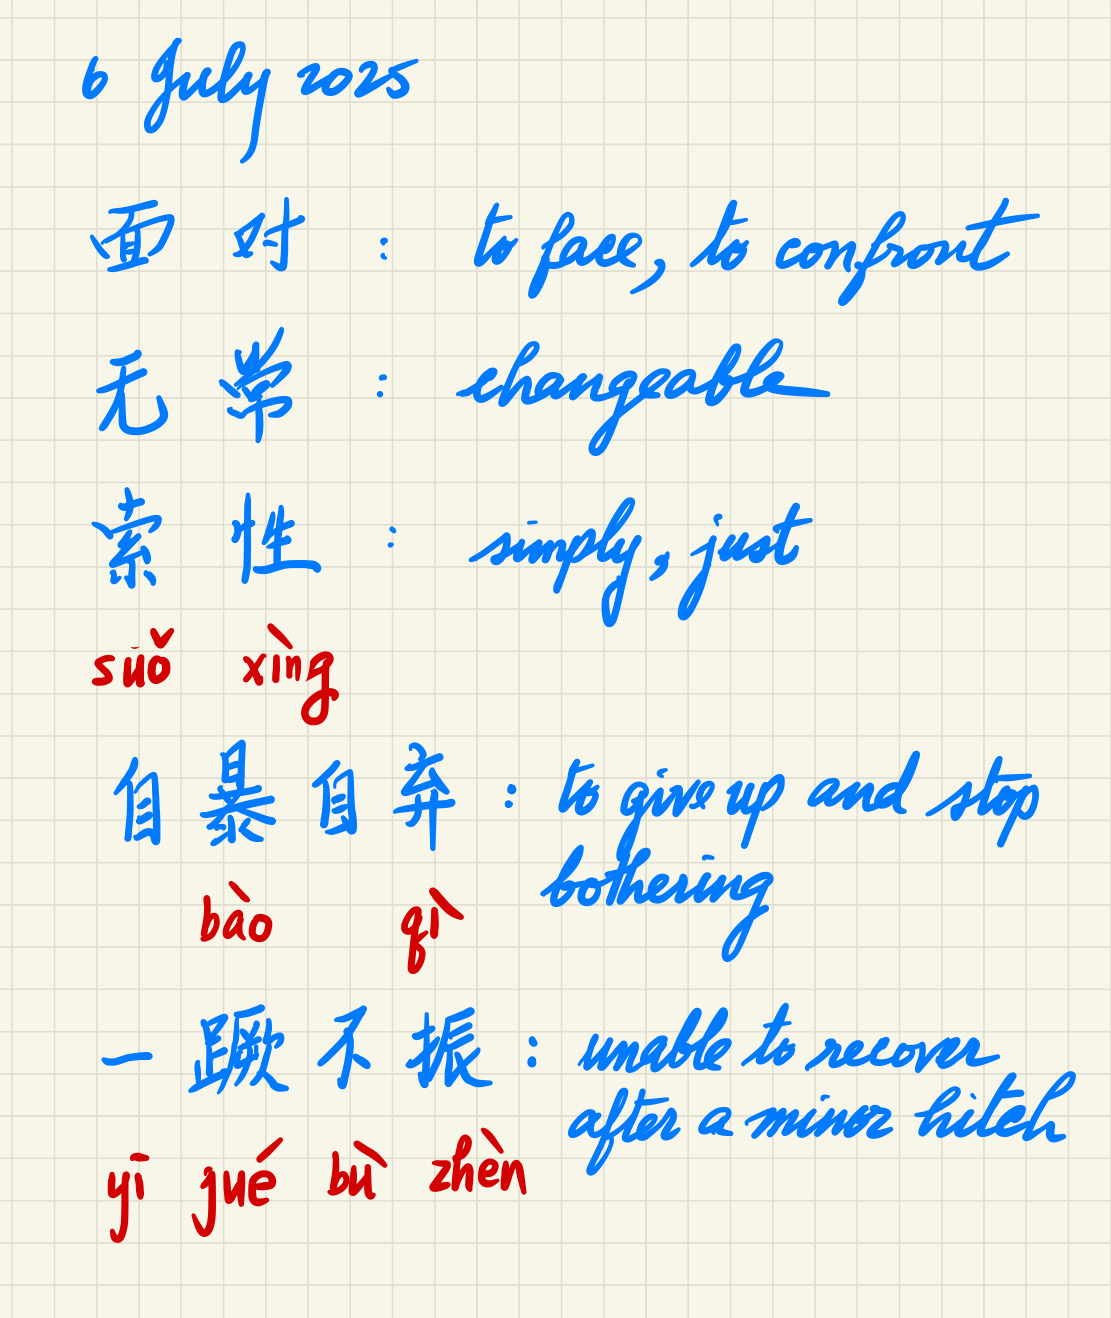 6 July 2025
面对 : to face, to confront
无常 : changeable
索性 : simply, just
suǒ xìng
自暴自弃 : to give up and stop
bothering
bào qì
一蹶不振 : unable to recover
after a minor hitch
yī jué bù zhèn